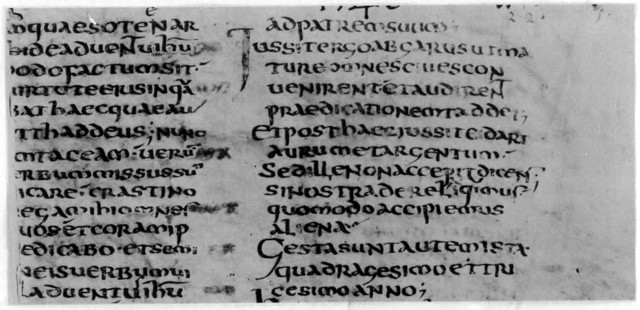 mquaesotenar
hideaduentuihu
odofactumsit·
irtuteeiusinqua
bathaecquaeau
tthaddeus; nunc
mtaceam·uerum
rbummissussu
icare·crastino
egamihiomnes
uosetcoramip
edicabo·etsem
neisuerbumui
laduentuihu
adpatremsuum
Iussitergoabgarusutma
tureomnesciuescon
uenirentetaudirent
praedicationemtaddei;
Etposthaeciussiteidari
aurumetargentum·
Sedillenonaccepitdicens
sinostradereliquimus
quomodoaccipiemus
aliena·
Gestasuntautemista·
quadragesimoettri
cesimoanno;